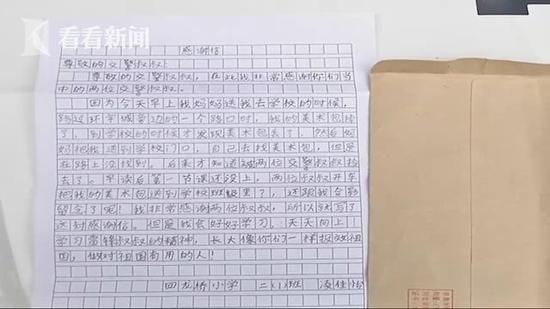 看看新闻
感谢信
尊敬的交警叔叔：
尊敬的交警叔叔，在此我非常感谢你们当
中的两位交警叔叔。
因为今天早上我妈妈送我去学校的时候，
路过环宇城旁边的一个路口时，我的美术包掉
了，到学校的时候才发现美术包丢了，然后妈
妈把我送到学校门口，自己去找美术包，但是
在路上没找到。后来才知道被两位交警叔叔捡
去了。早读后第一节课还没上，两位叔叔开车
把我的美术包送到学校班级里了，还跟我合影
留念了呢！我非常感谢两位叔叔，所以就写了
这封感谢信。但是我会好好学习。天天向上，
学习雷锋叔叔的精神，长大像你们一样报效祖
国，做对祖国有用的人！
四龙桥小学 二(1)班 凌佳怡